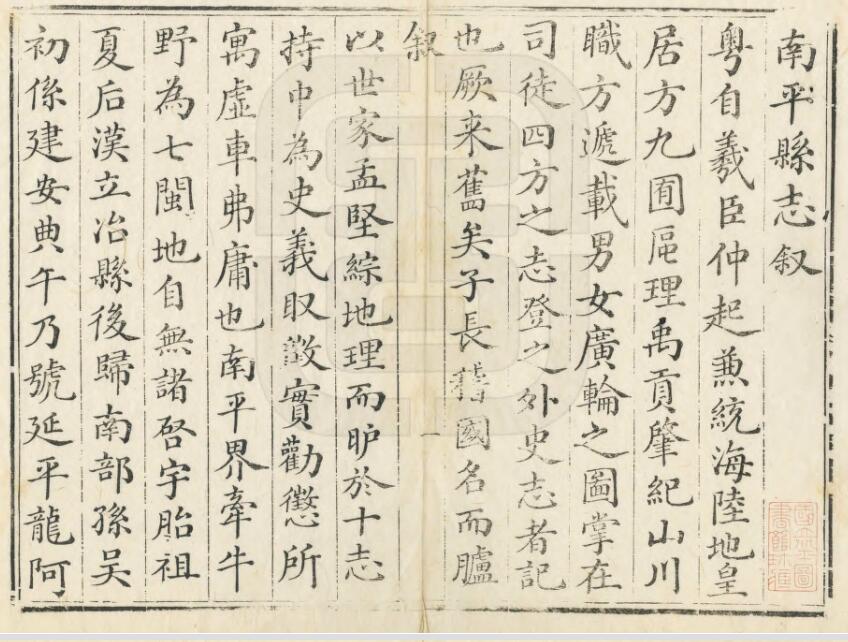 南平縣志叙
粵自羲臣仲起兼統海陸地皇
居方九囿區理禹貢肇紀山川
職方遞載男女廣輪之圖掌在
司徒四方之志登之外史志者記
也厥来舊矣子長譜國名而臚
叙
一
以世家孟堅綜地理而昈於十志
持中為史義取徵實勸懲所
寓虛車弗庸也南平界牽牛
野為七閩地自無諸啓宇胎祖
夏后漢立冶縣後歸南部孫吳
初係建安典午乃號延平龍阿